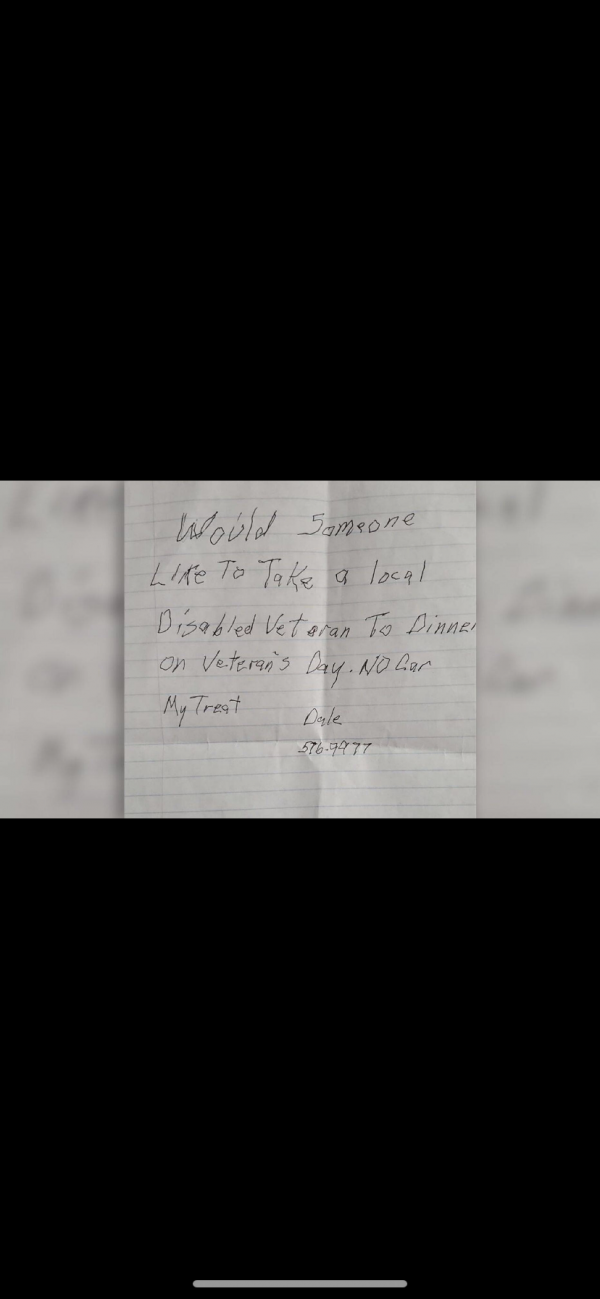 Would Someone
Like To Take a local
Disabled Veteran To Dinner
on Veteran's Day. NO Car
My Treat
Dale
576-7977